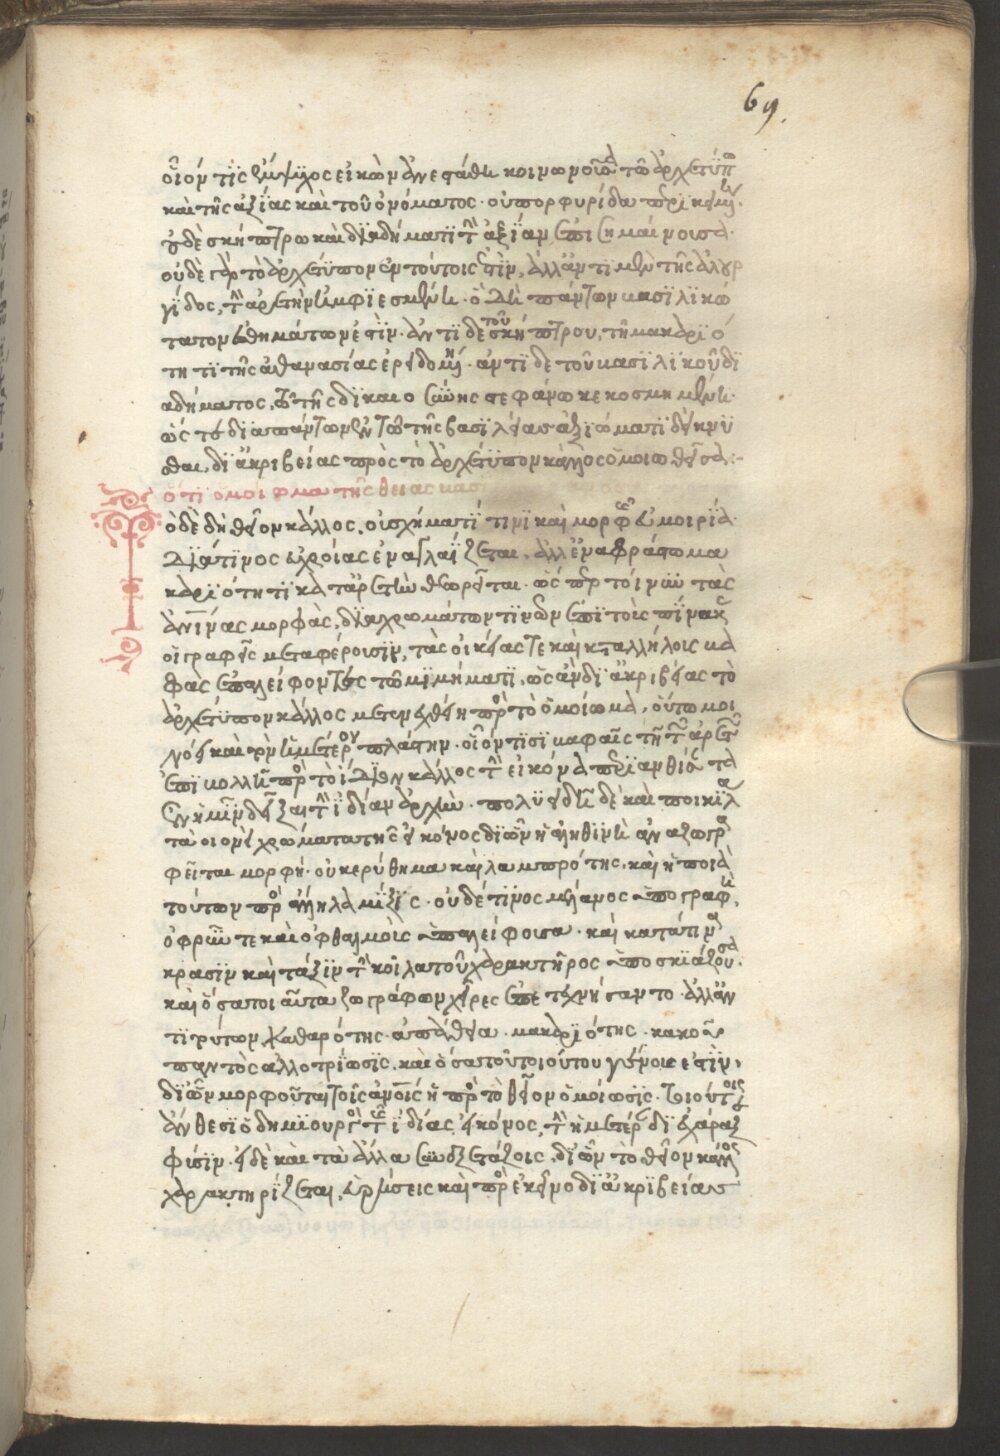 69.
οἷόν τις ἔμψυχος εἰκὼν ἀνεστάθη κοινωνοῦσα τῶ ἀρχετύπω
καὶ τῆς ἀξίας καὶ τοῦ ὀνόματος· οὐ πορφυρίδα περικειμένη·
οὐδὲ σκήπτρω καὶ διαδήματι τὴν ἀξίαν ἐπισημαίνουσα·
οὐδὲ γὰρ τὸ ἀρχέτυπον ἐν τούτοις ἐστὶν, ἀλλ' ἀντὶ μὲν τῆς ἁλουρ
γίδος, τὴν ἀρετὴν ἠμφιεσμένη· ὃ δὴ πάντων βασιλικώ
τατον ἐσθημάτων ἐστὶν· ἀντὶ δὲ τοῦ σκήπτρου, τῆ μακαριό
τητι τῆς ἀθανασίας ἐρειδομένη· ἀντὶ δὲ τοῦ βασιλικοῦ δι
αδήματος, τῶ τῆς δικαιοσύνης στεφάνω κεκοσμημένη·
ὥς τε διὰ πάντων ἐν τῶ τῆς βασιλείας ἀξιώματι δείκνυ
σθαι, δι' ἀκριβείας πρὸς τὸ ἀρχέτυπον κάλλος ὁμοιωθεῖσα:-
ὅτι ὁμοίωμα τῆς θείας βασ
ὁ δὲ δὴ θεῖον κάλλος, οὐ σχήματί τινι καὶ μορφῆς εὐμοιρία
διά τινος εὐχροίας ἐναγλαΐζεται, ἀλλ' ἐν ἀφράστω μα
καριότητι κατ' ἀρετὴν θεωρεῖται· ὥσπερ τοίνυν τὰς
ἀνίνας μορφὰς, διὰ χρωμάτων τινῶν ἐπὶ τοὺς πίνακας
οἱ γραφεῖς μεταφέρουσιν, τὰς οἰκείας τε καὶ καταλλήλους βα
φὰς ἐπαλείφοντες τῶ μιμήματι, ὡς ἂν δι' ἀκριβείας τὸ
ἀρχέτυπον κάλλος μετενεχθείη πρὸς τὸ ὁμοίωμα, οὕτω μοι
νόει καὶ τὸν ἡμέτερον πλάστην· οἷόν τισι βαφαῖς τῆ τῶν ἀρετῶν
ἐπιβολῆ πρὸς τὸ ἴδιον κάλλος τὴν εἰκόνα περιανθίσαντα
ἐν ἡμῖν δεῖξαι τὴν ἰδίαν ἀρχὴν· πολυειδῆ δὲ καὶ ποικίλα
τὰ οἱονεὶ χρώματα τῆς εἰκόνος δι' ὧν ἡ ἀληθινὴ ἀναζωγρα
φεῖται μορφή· οὐκ ἐρύθημα καὶ λαμπρότης, καὶ ἡ ποιὰ
τούτων πρὸς ἄλληλα μίξις· οὐδέ τινος μέλανος ὑπογραφὴ,
ὀφρῦν τε καὶ ὀφθαλμοὺς ὑπαλείφουσα· καὶ κατά τινα
κρᾶσιν καὶ τάξιν τὰ κοῖλα τοῦ χαρακτῆρος ὑποσκιάζουσα·
καὶ ὅσα τοιαῦτα ζωγράφων χεῖρες ἐπετεχνήσαντο· ἀλλ' ἀν
τὶ τούτων, καθαρότης· ἀπάθεια· μακαριότης· κακοῦ
παντὸς ἀλλοτρίωσις, καὶ ὅσα τοῦ τοιούτου γένους ἐστὶν,
δι' ὧν μορφοῦται τοῖς ἀνοις ἡ πρὸς τὸ θεῖον ὁμοίωσις· τοιούτοις
ἄνθεσιν ὁ δημιουργὸς τῆς ἰδίας εἰκόνος, τὴν ἡμετέραν διεχάραξε
φύσιν· εἰ δὲ καὶ τὰ ἄλλα συνεξετάζοις, δι' ὧν τὸ θεῖον κάλλος
χαρακτηρίζεται, εὑρήσεις καὶ πρὸς ἐκεῖνο δι' ἀκριβείας